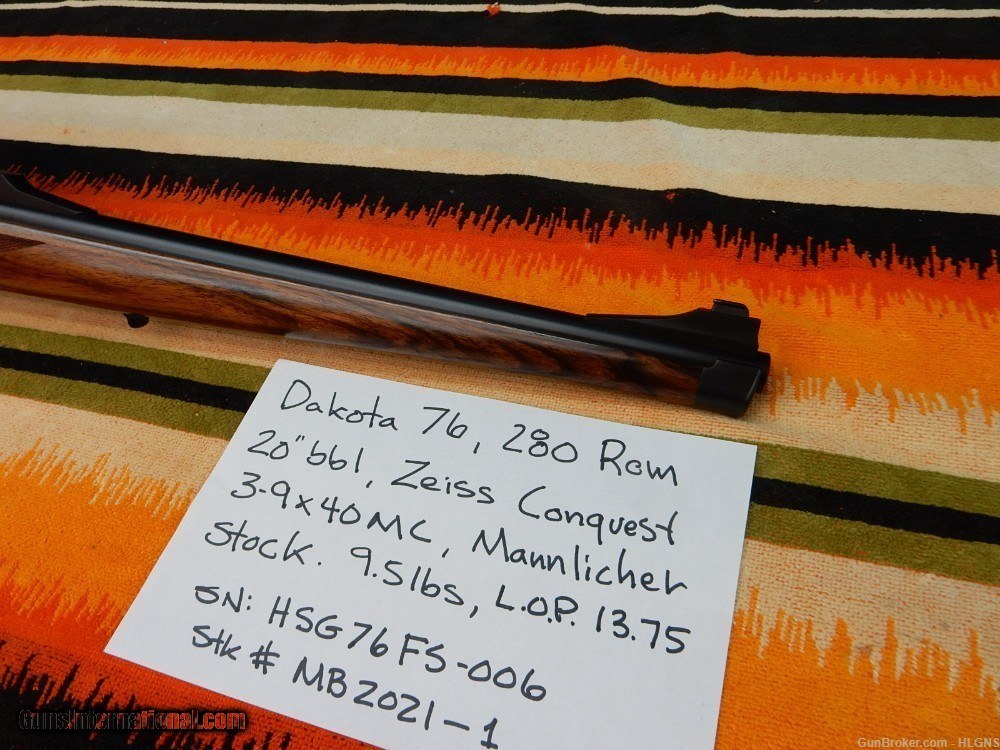 Dakota 76, 280 Rem
20" bbl, Zeiss Conquest
3-9x40MC, Mannlicher
Stock. 9.5lbs, L.O.P. 13.75
SN: HSG76FS-006
Stk # MB2021-1
GunsInternational.com
GunBroker.com - HLGNS